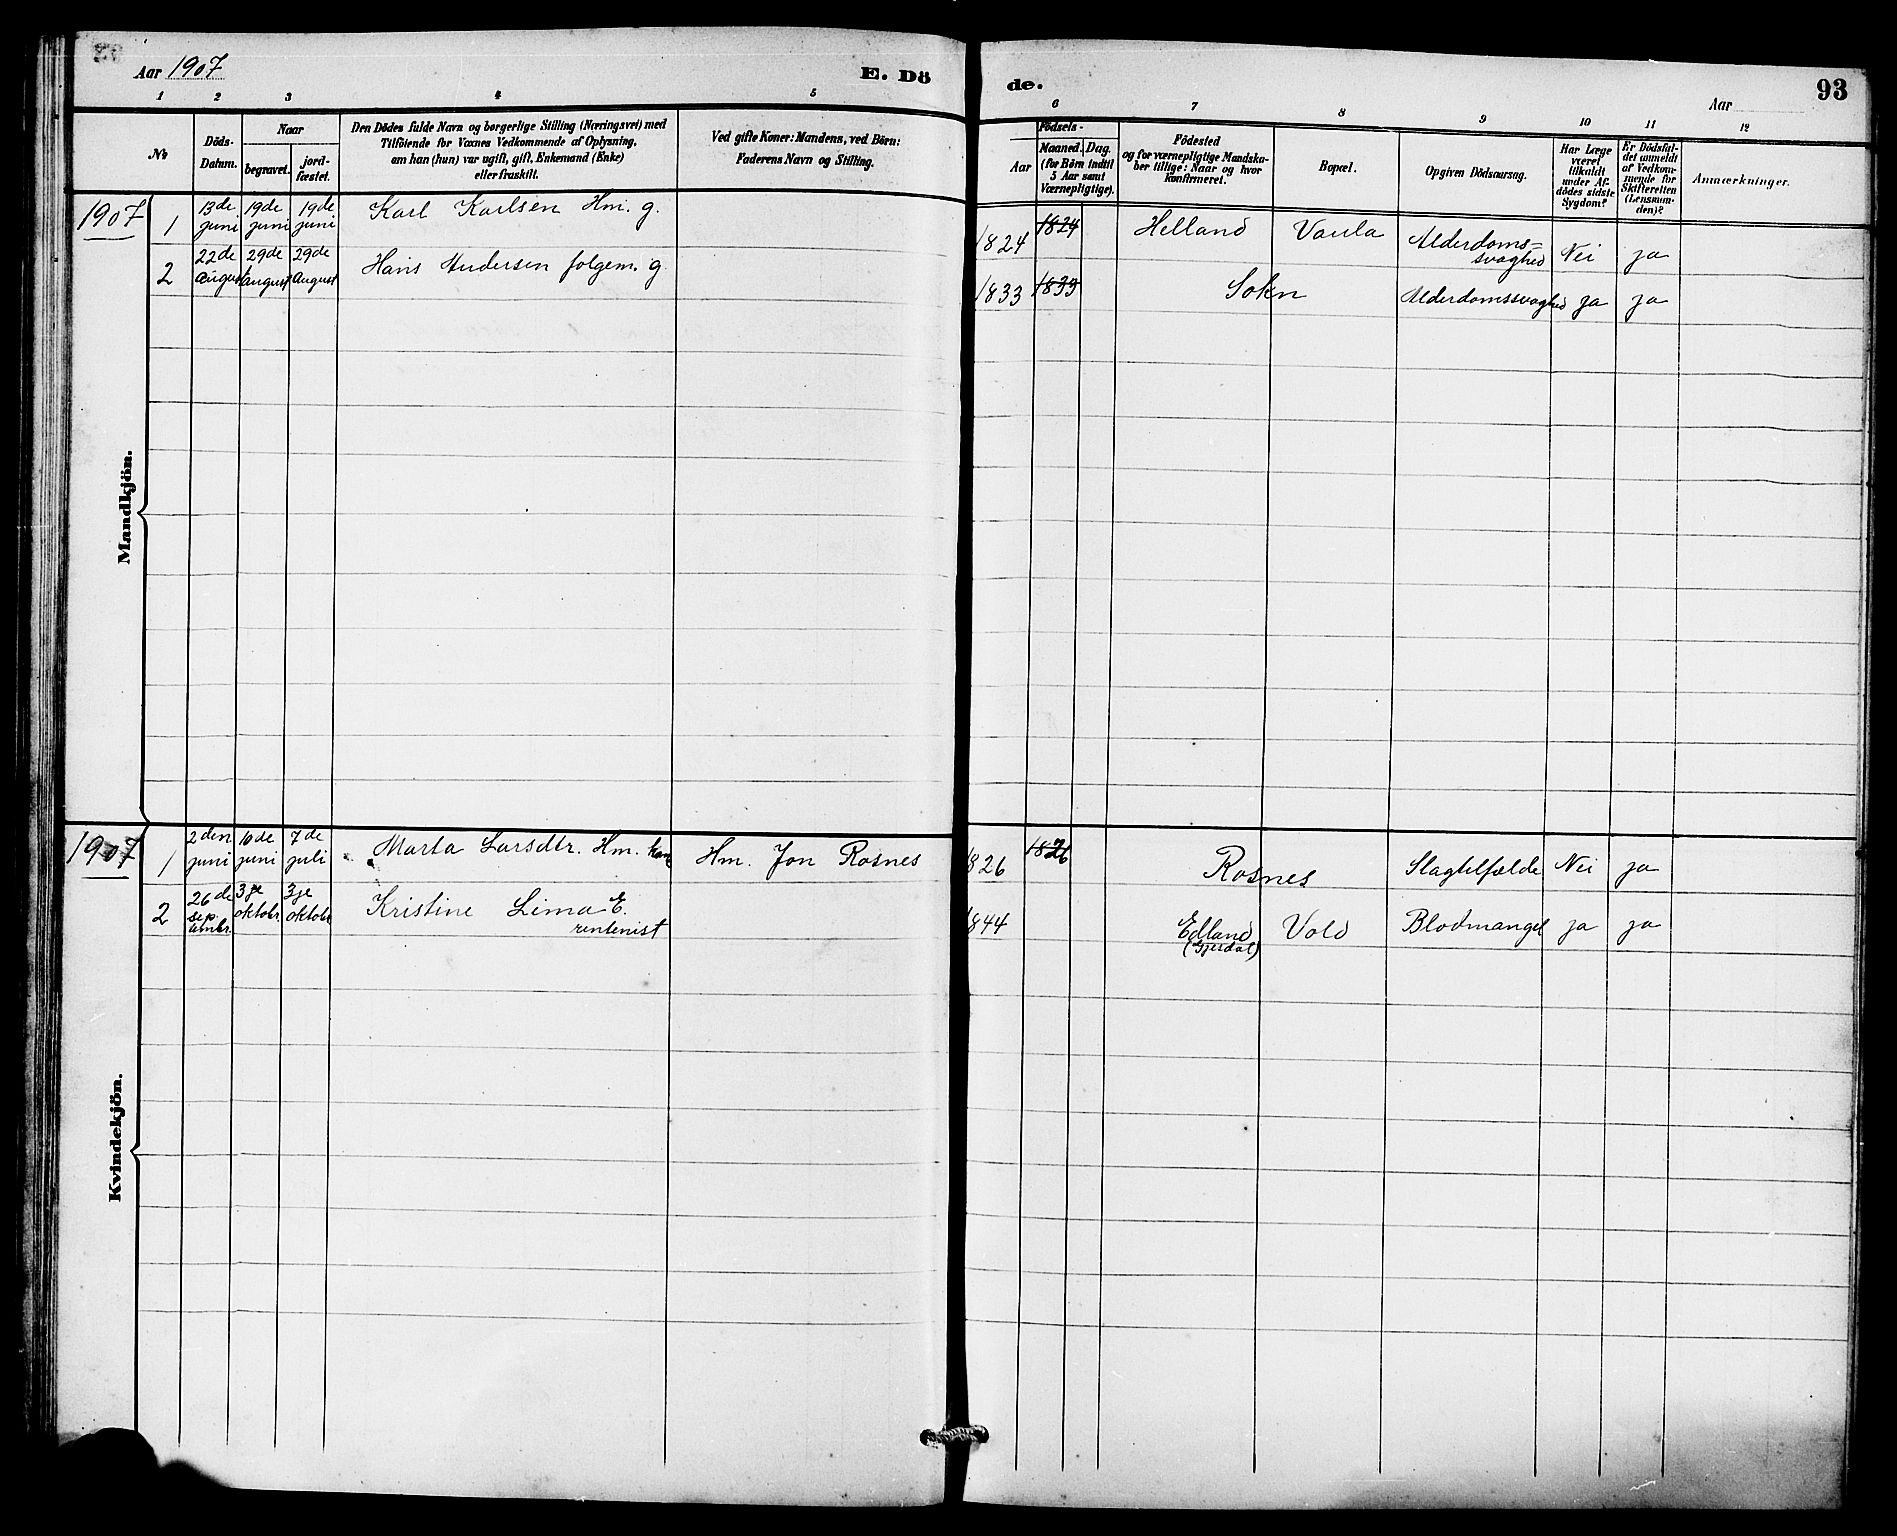 Aar 1907 E. Dö
1 2 3 4 5
№ Döds-Datum. Naar begravet. jord-fæstet. Den Dödes fulde Navn og borgerlige Stilling (Næringsvei) med Tilföiende for Voxnes Vedkommende af Oplysning, om han (hun) var ugift, gift, Enkemand (Enke) eller fraskilt. Ved gifte Koner: Mandens, ved Börn: Faderens Navn og Stilling.
de. Aar 93
6 7 8 9 10 11 12
Födsels-
Aar Maaned. Dag. (for Börn indtil 5 Aar samt Værnepligtige). Födested og for værnepligtige Mandskaber tillige: Naar og hvor konfirmeret. Bopæl. Opgiven Dödsaarsag. Har Læge været tilkaldt under Afdödes sidste Sygdom? Er Dödsfaldet anmeldt af Vedkommende for Skifteretten (Lensmanden)? Anmærkninger.
Mandkjön.
1907 1 13de juni 19de juni 19de juni Karl Karlsen Hm. g. 1824 1824 Helland Vaula Alderdoms=svaghed Nei ja
2 22de august 29de august 29de august Hans Andersen folgem. g. 1833 1833 Sokn Alderdomssvaghed ja ja
Kvindekjön.
1907 1 2den juni 10de juni 7de juli Marta Larsdtr. Hm. kone Hm. Jon Rosnes 1826 1826 Rosnes Slagtilfælde Nei ja
2 26de septembr. 3je oktobr 3je oktobr Kristine Lima E. rentenist 1844 Edland (Gjesdal) Vold Blodmangel ja ja